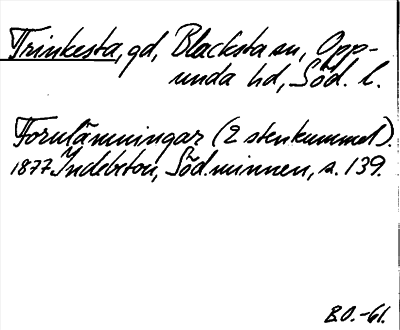 Trinkesta, gd, Blacksta sn, Opp-
unda hd, Söd. l.
Fornlämningar (2 stenkummel).
1877 Indebetou, Söd.minnen, s. 139.
B.O.-61.